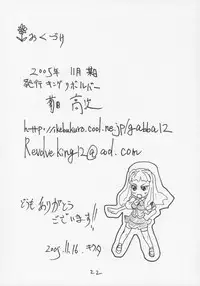 おくづけ
2005年 11月 期
発行 キングリボルバー
菊 高次
http://ikebukuro.cool.ne.jp/gabba12
Revolveking12@aol.com
どうも ありがとう
ございます!!
2005.11.16.
22